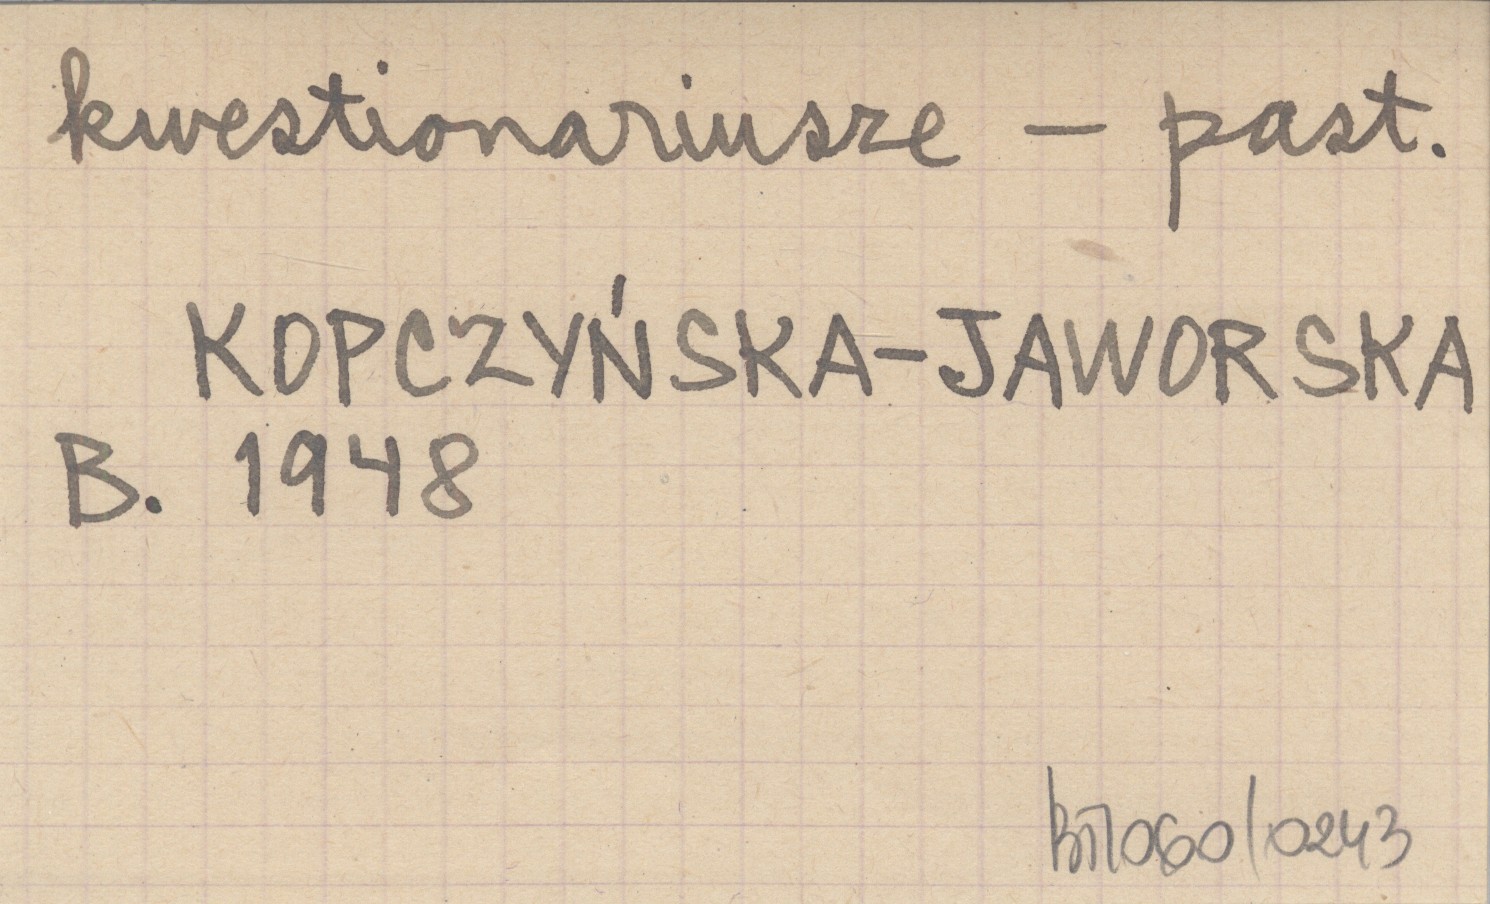 kwestionariusze – past.
KOPCZYŃSKA-JAWORSKA
B. 1948